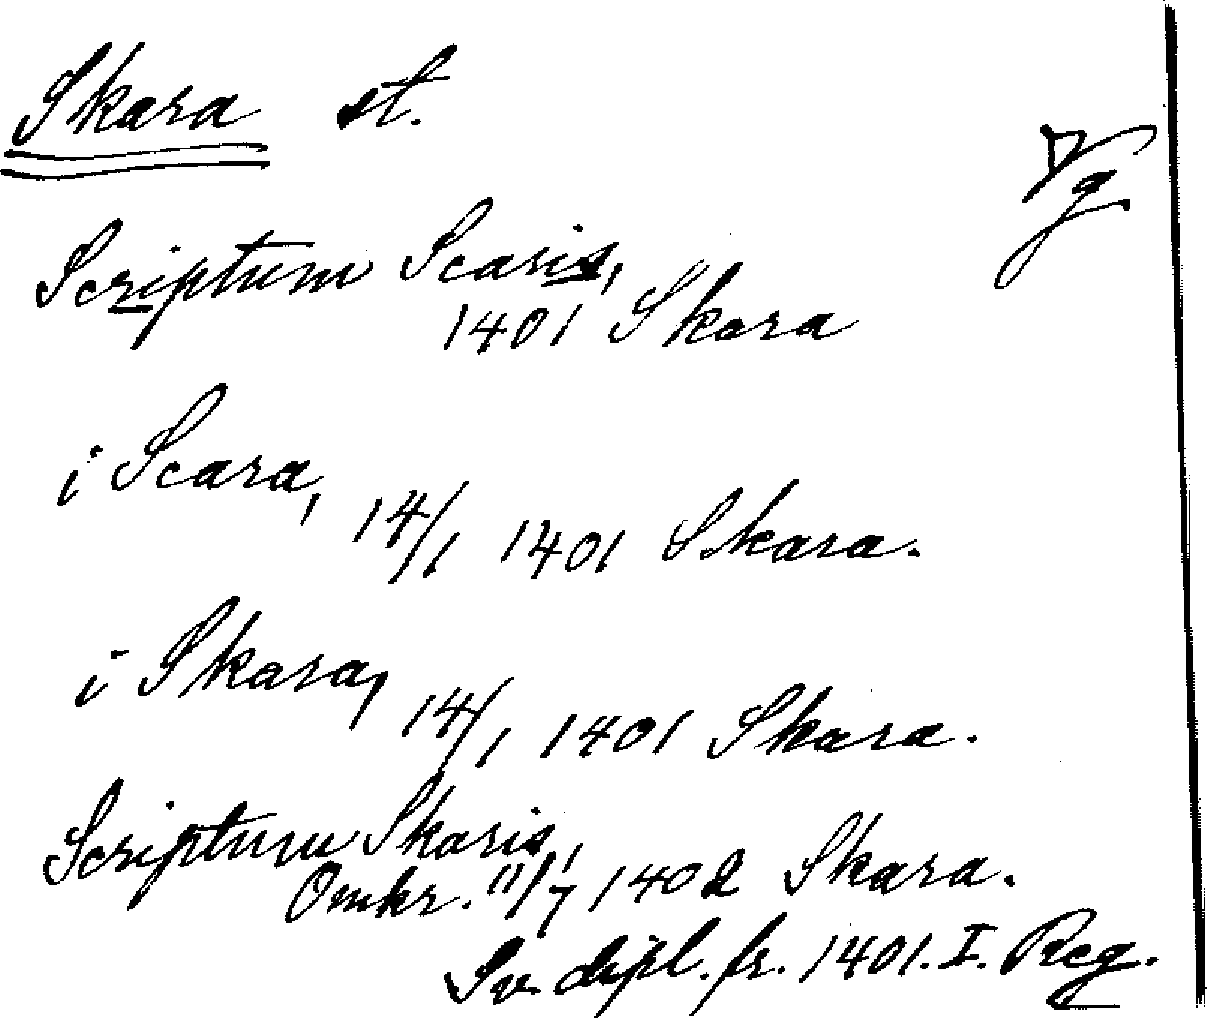 Skara st.
Vg
Scriptum Scaris,
1401 Skara
i Scara, 14/1 1401 Skara.
i Skara, 14/1 1401 Skara.
Scriptum Skaris,
Omkr. 11/7 1402 Skara.
Sv. dipl. fr. 1401. I. Reg.